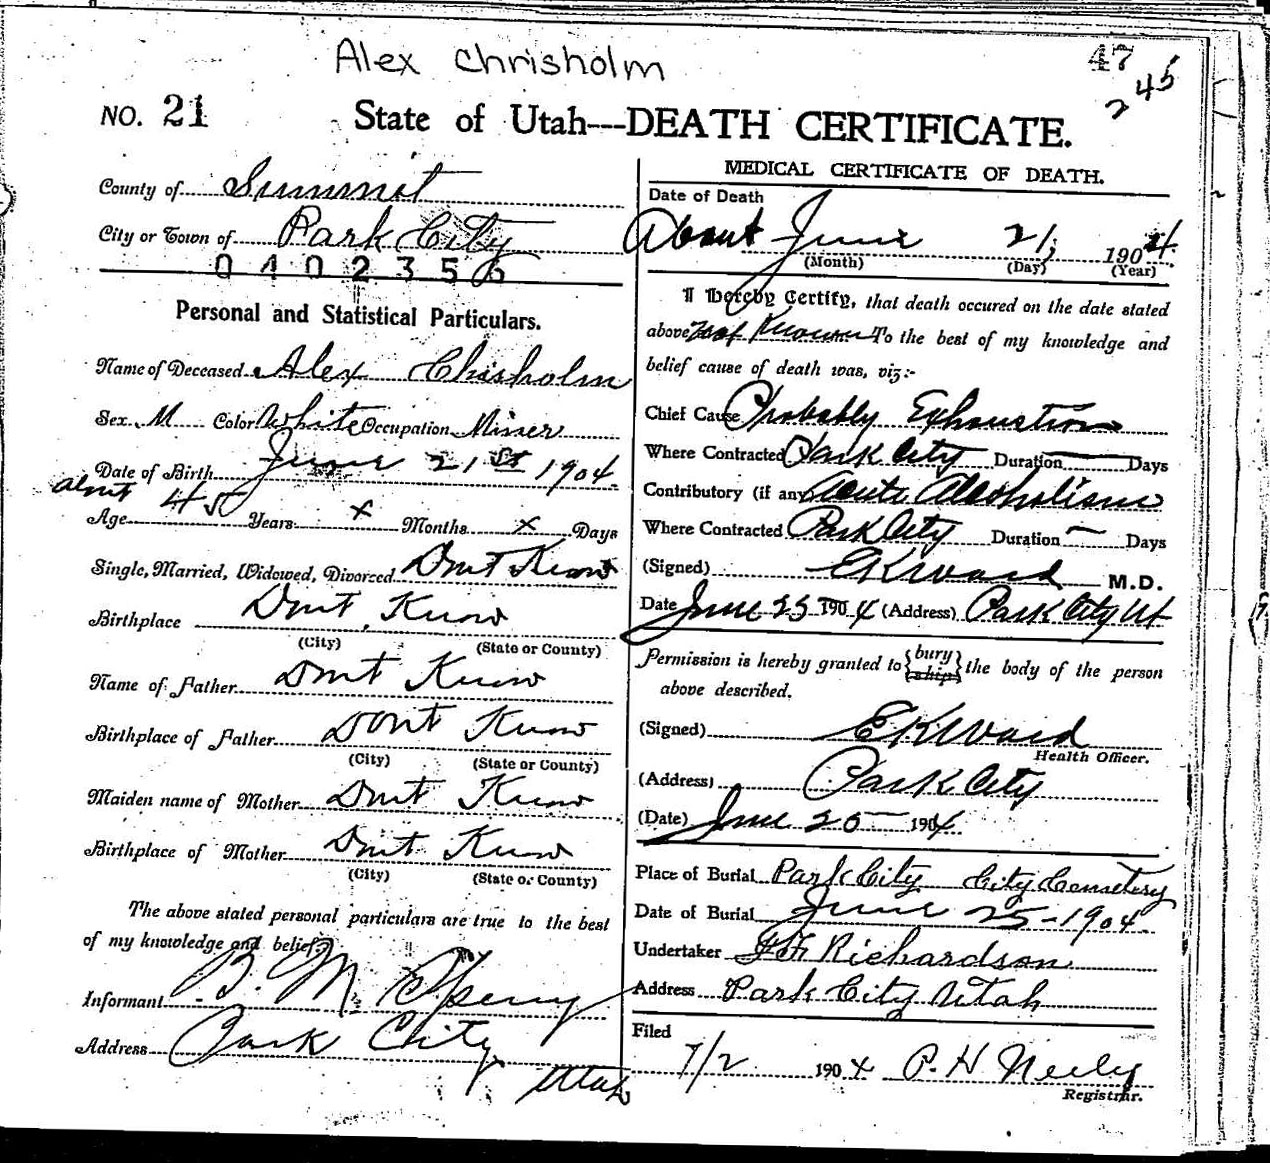 Alex Chrisholm
47
245
NO. 21 State of Utah---DEATH CERTIFICATE.
County of Summit
City or Town of Park City
0 4 0 2 3 5 6
Personal and Statistical Particulars.
Name of Deceased Alex Chisholm
Sex M Color White Occupation Minner
Date of Birth June 21st 1904
about
Age 45 Years x Months x Days
Single, Married, Widowed, Divorced Dont Know
Birthplace Dont Know
(City) (State or County)
Name of Father Dont Know
Birthplace of Father Dont Know
(City) (State or County)
Maiden name of Mother Dont Know
Birthplace of Mother Dont Know
(City) (State or County)
The above stated personal particulars are true to the best
of my knowledge and belief.
Informant B. M.
Address Park City
Utah
MEDICAL CERTIFICATE OF DEATH.
Date of Death
About June 21, 1904
(Month) (Day) (Year)
I Hereby Certify, that death occured on the date stated
above not Known To the best of my knowledge and
belief cause of death was, viz:-
Chief Cause Probably Exhaustion
Where Contracted Park City Duration — Days
Contributory (if any) Acute Alcoholism
Where Contracted Park City Duration — Days
(Signed) EKWard M.D.
Date June 25 1904 (Address) Park City Ut
Permission is hereby granted to {bury
ship} the body of the person
above described.
(Signed) EKWard
Health Officer.
(Address) Park City
(Date) June 25 1904
Place of Burial Park City City Cemetery
Date of Burial June 25-1904.
Undertaker Richardson
Address Park City Utah
Filed
7/2 1904 P. H Neely
Registrar.